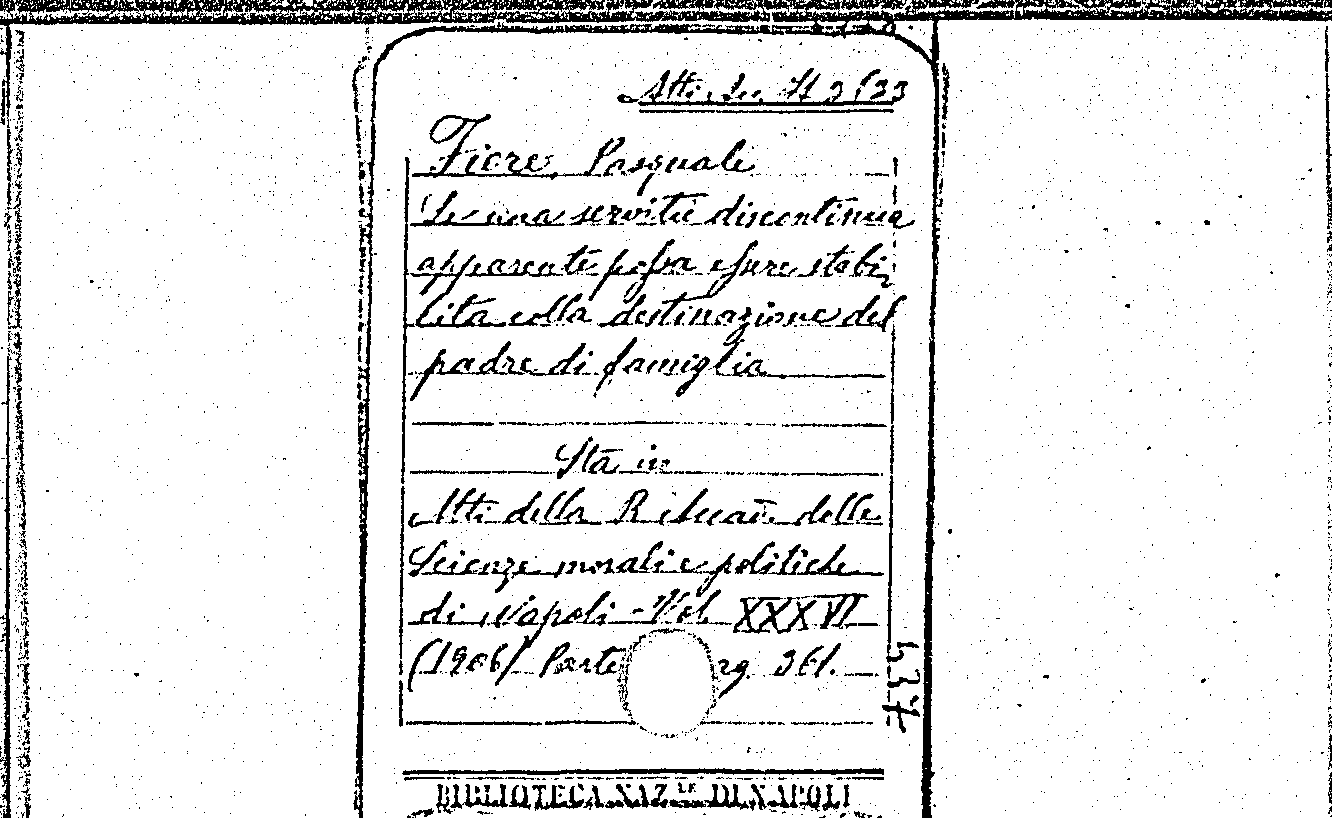 Atti. Sc. H 3 (23
Fiore, Pasquale
Se una servitù discontinua
apparente possa essere stabi-
lita colla destinazione del
padre di famiglia
Sta in
Atti della R Accad. delle
Scienze morali e politiche
di Napoli - Vol. XXXVI
(1906) Parte pag 361.
537
BIBLIOTECA NAZ.LE DI NAPOLI